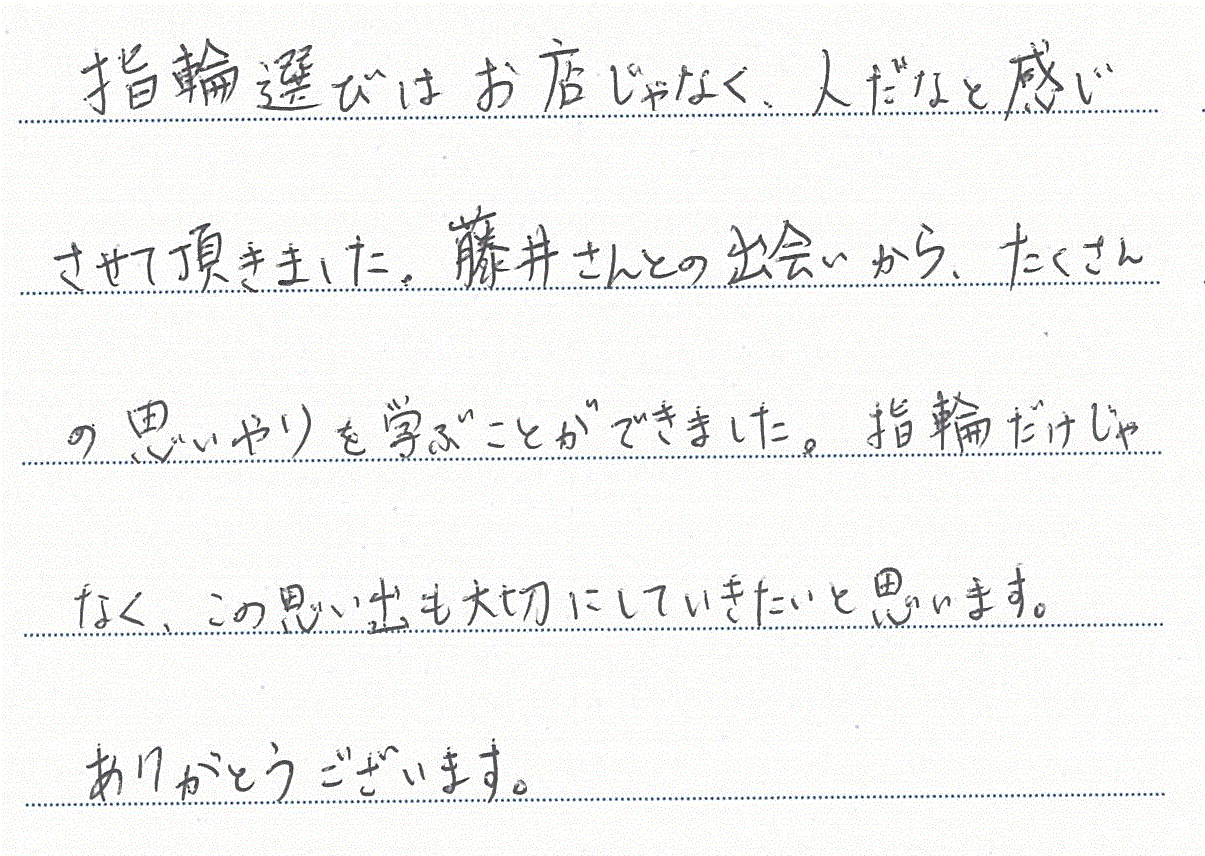 指輪選びはお店じゃなく、人だなと感じ
させて頂きました。藤井さんとの出会いから、たくさん
の思いやりを学ぶことができました。指輪だけじゃ
なく、この思い出も大切にしていきたいと思います。
ありがとうございます。